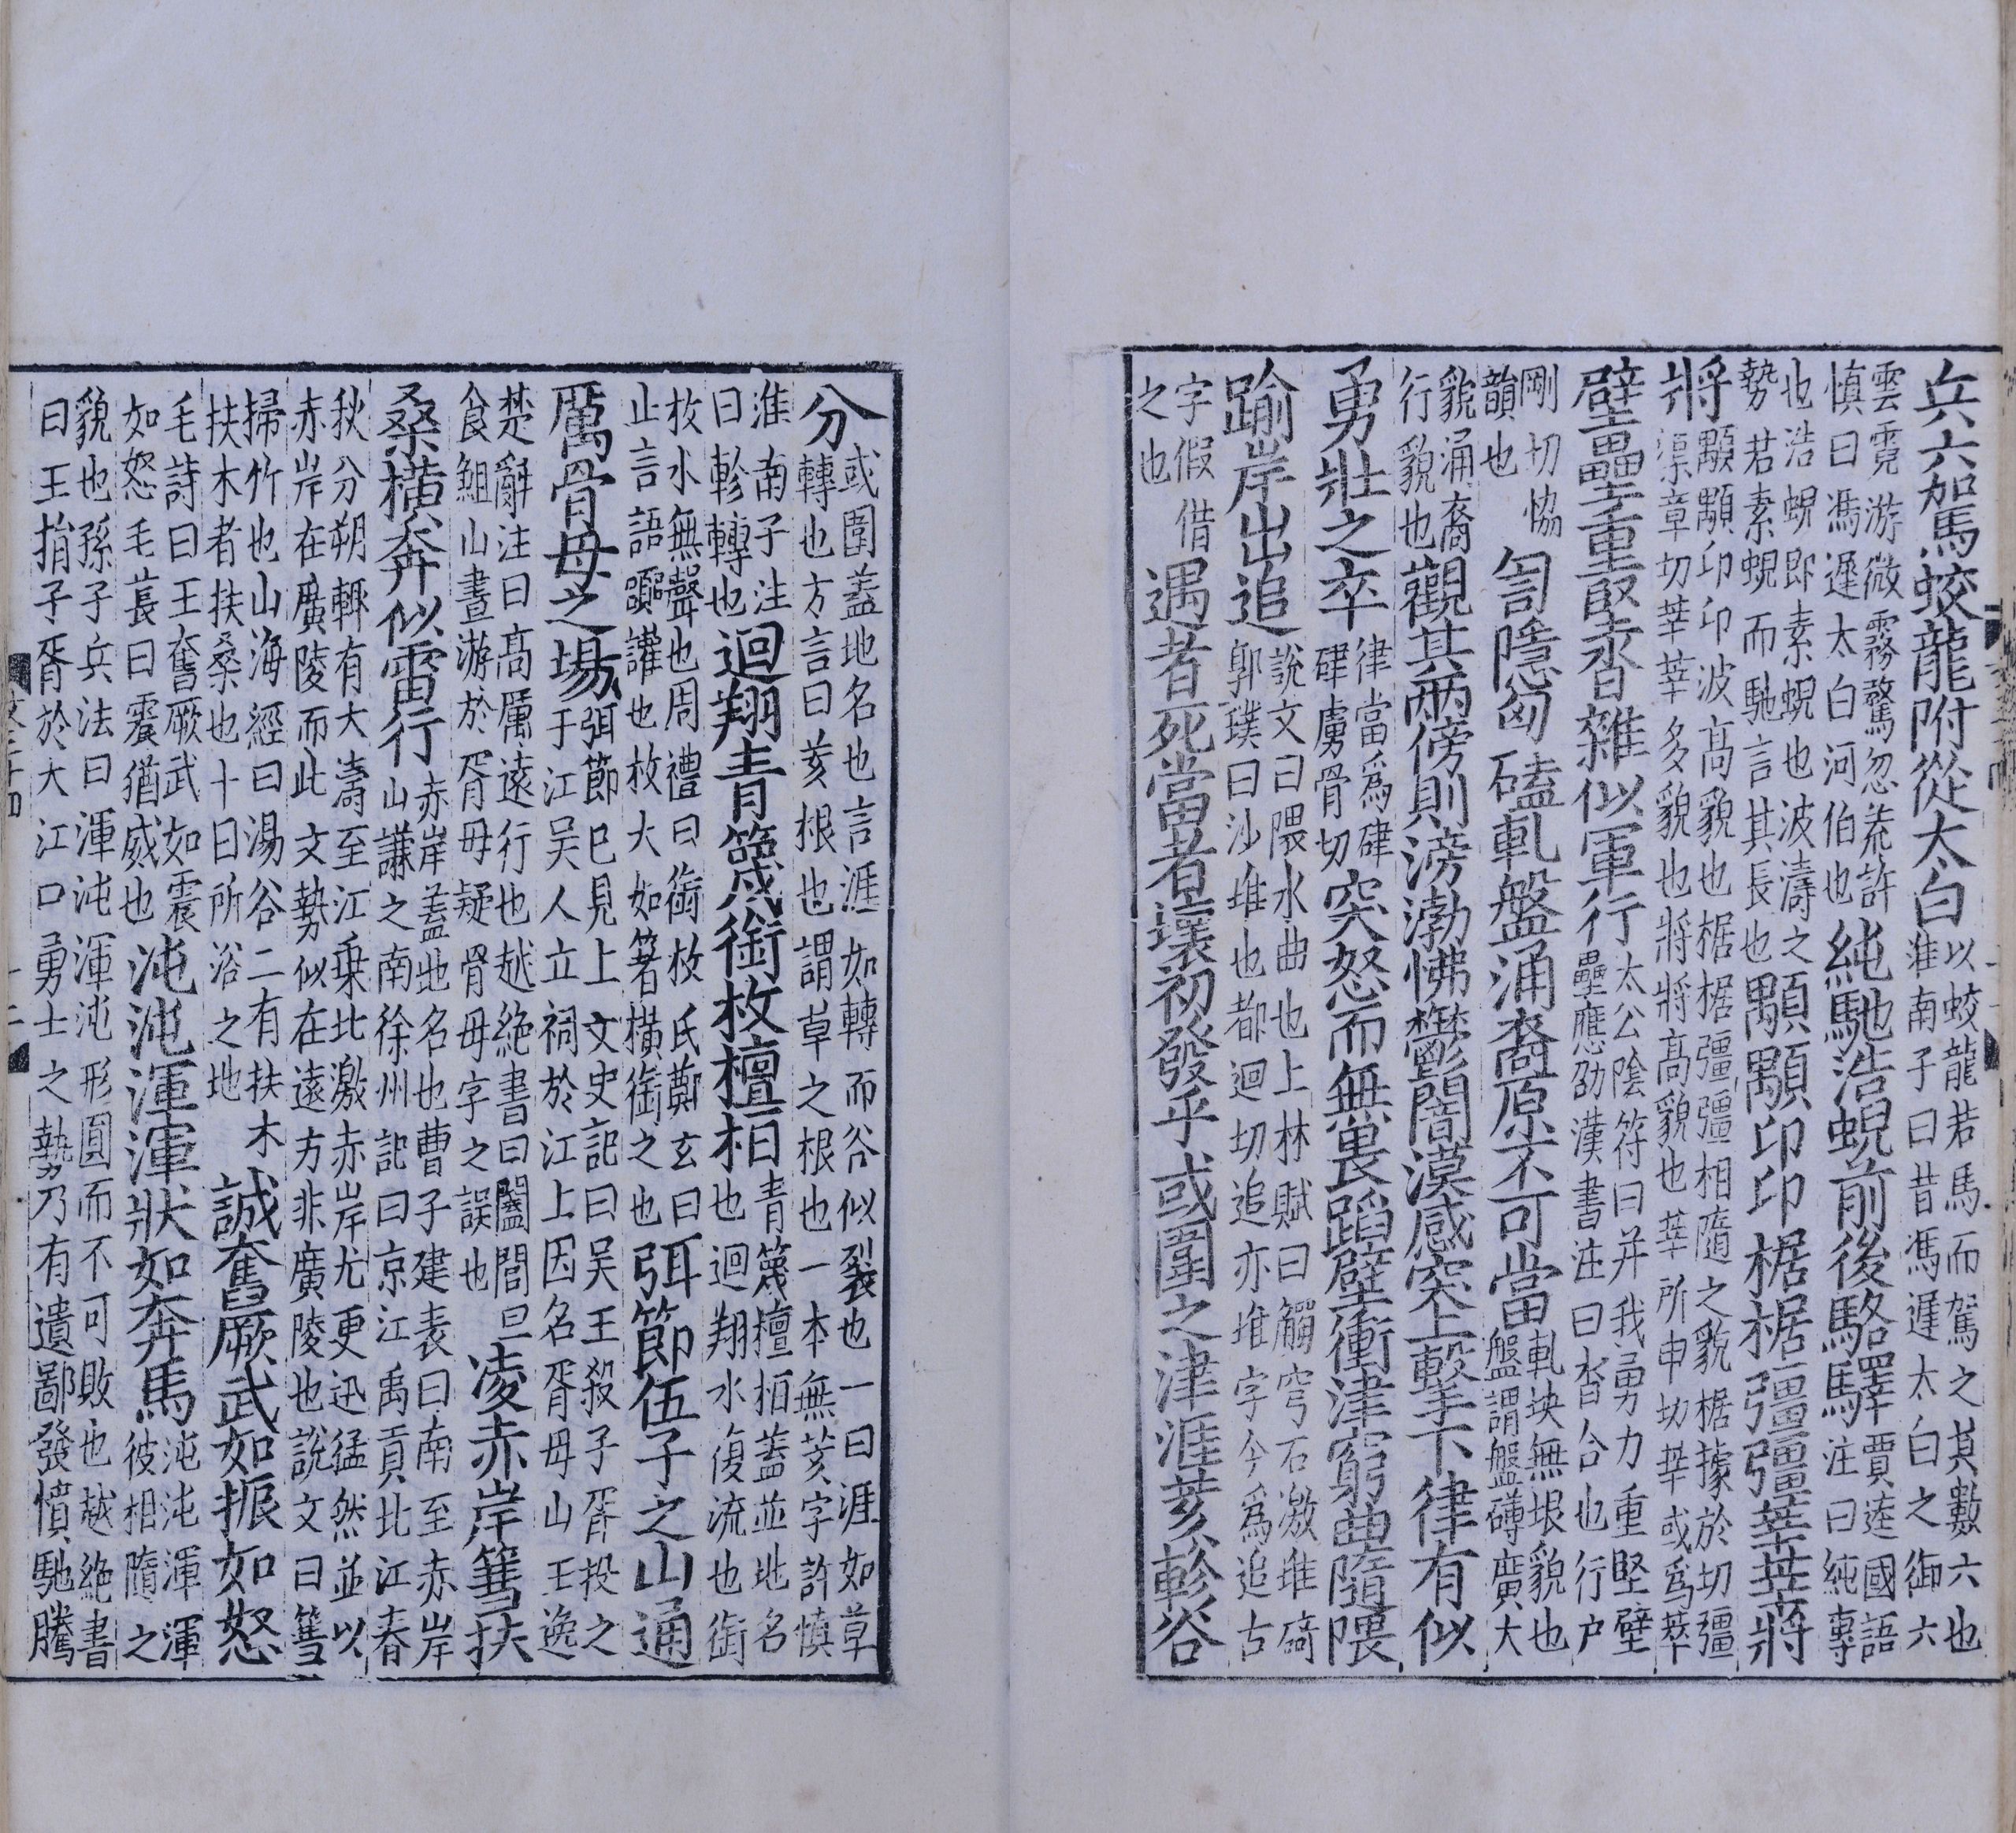 兵六駕蛟龍附從太白以蛟龍若馬而駕之其數六也淮南子曰昔馮遲太白之御六
雲霓游微霧驁忽荒許慎曰馮遲太白河伯也純馳浩蜺前後駱驛賈逵國語注曰純專
也浩蜺即素蜺也波濤之勢若素蜺而馳言其長也顒顒卬卬椐椐彊彊莘莘將
將顒顒卬卬波高貌也椐椐彊彊相隨之貌椐據於切彊渠章切莘莘多貌也將將高貌也莘所申切莘或爲莘
壁壘重堅沓雜似軍行太公陰符曰并我勇力重堅壁壘應劭漢書注曰沓合也行户
剛切協韻也訇隱匈磕軋盤涌裔原不可當軋坱無垠貌也盤謂盤礴廣大
貌涌裔行貌也觀其兩傍則滂渤怫鬱闇漠感突上擊下律有似
勇壯之卒律當爲硉硉虜骨切突怒而無畏蹈壁衝津窮曲隨隈
踰岸出追說文曰隈水曲也上林賦曰觸穹石激堆碕郭璞曰沙堆也都迴切追亦堆字今爲追古
字假借之也遇者死當者壞初發乎或圍之津涯荄軫谷
分或圍蓋地名也言涯如轉而谷似裂也一曰涯如草轉也方言曰荄根也謂草之根也一本無荄字許慎
淮南子注曰軫轉也迴翔青篾銜枚檀桓青篾檀栢蓋並地名也迴翔水復流也銜
枚水無聲也周禮曰銜枚氏鄭玄曰止言語囂讙也枚大如箸橫銜之也弭節伍子之山通
厲骨母之場弭節已見上文史記曰吴王殺子胥投之于江吴人立祠於江上因名胥母山王逸
楚辭注曰高厲遠行也越絶書曰闔閭旦食䱉山晝游於胥母疑骨母字之誤也凌赤岸篲扶
桑橫奔似雷行赤岸蓋地名也曹子建表曰南至赤岸山謙之南徐州記曰京江禹貢北江春
秋分朔輒有大濤至江乗北激赤岸尤更迅猛然並以赤岸在廣陵而此文勢似在遠方非廣陵也說文曰篲
掃竹也山海經曰湯谷二有扶木扶木者扶桑也十日所浴之地誠奮厥武如振如怒
毛詩曰王奮厥武如震如怒毛萇曰震猶威也沌沌渾渾狀如奔馬沌沌渾渾彼相隨之
貌也孫子兵法曰渾沌渾沌形圓而不可敗也越絶書曰王捐子胥於大江口勇士之執乃有遺鄙發憤馳騰